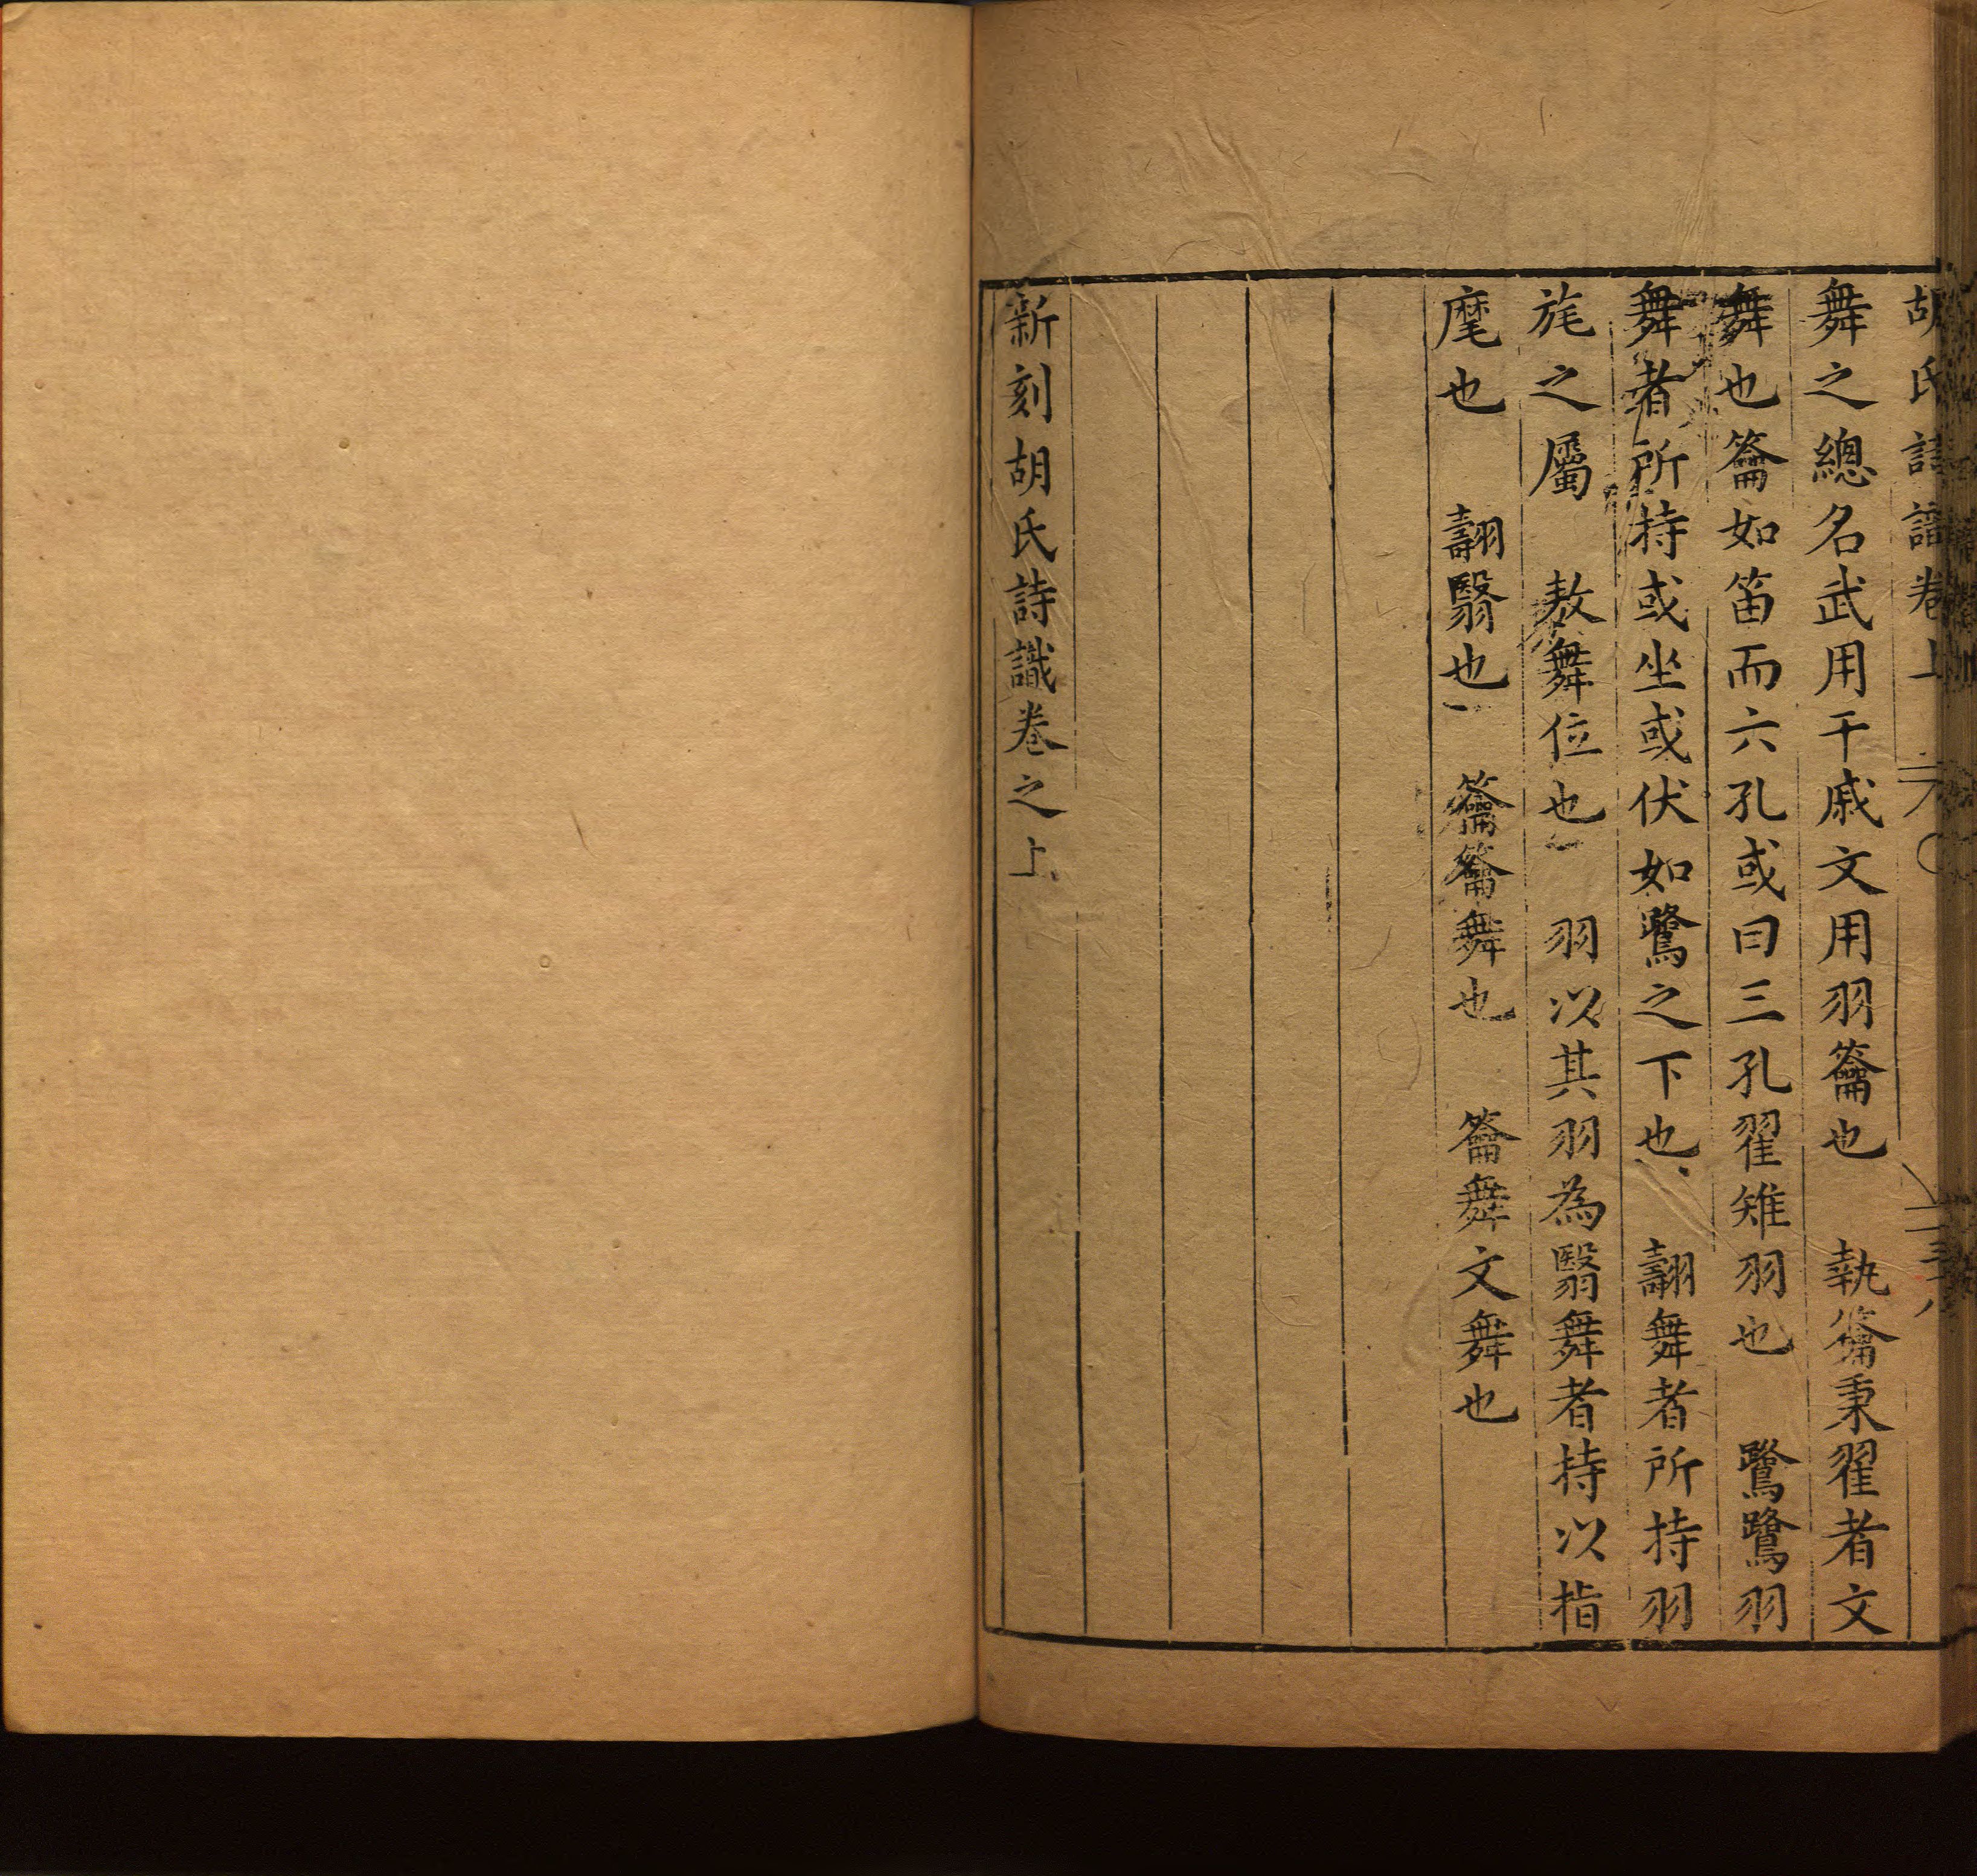 胡氏詩識卷上
三十八
舞之總名武用干戚文用羽籥也　執籥秉翟者文
舞也籥如笛而六孔或曰三孔翟雉羽也　鷺鷺羽
舞者所持或坐或伏如鷺之下也　翿舞者所持羽
旄之屬　敖舞位也　羽以其羽為翳舞者持以指
麾也　翿翳也　籥籥舞也　籥舞文舞也
新刻胡氏詩識卷之上